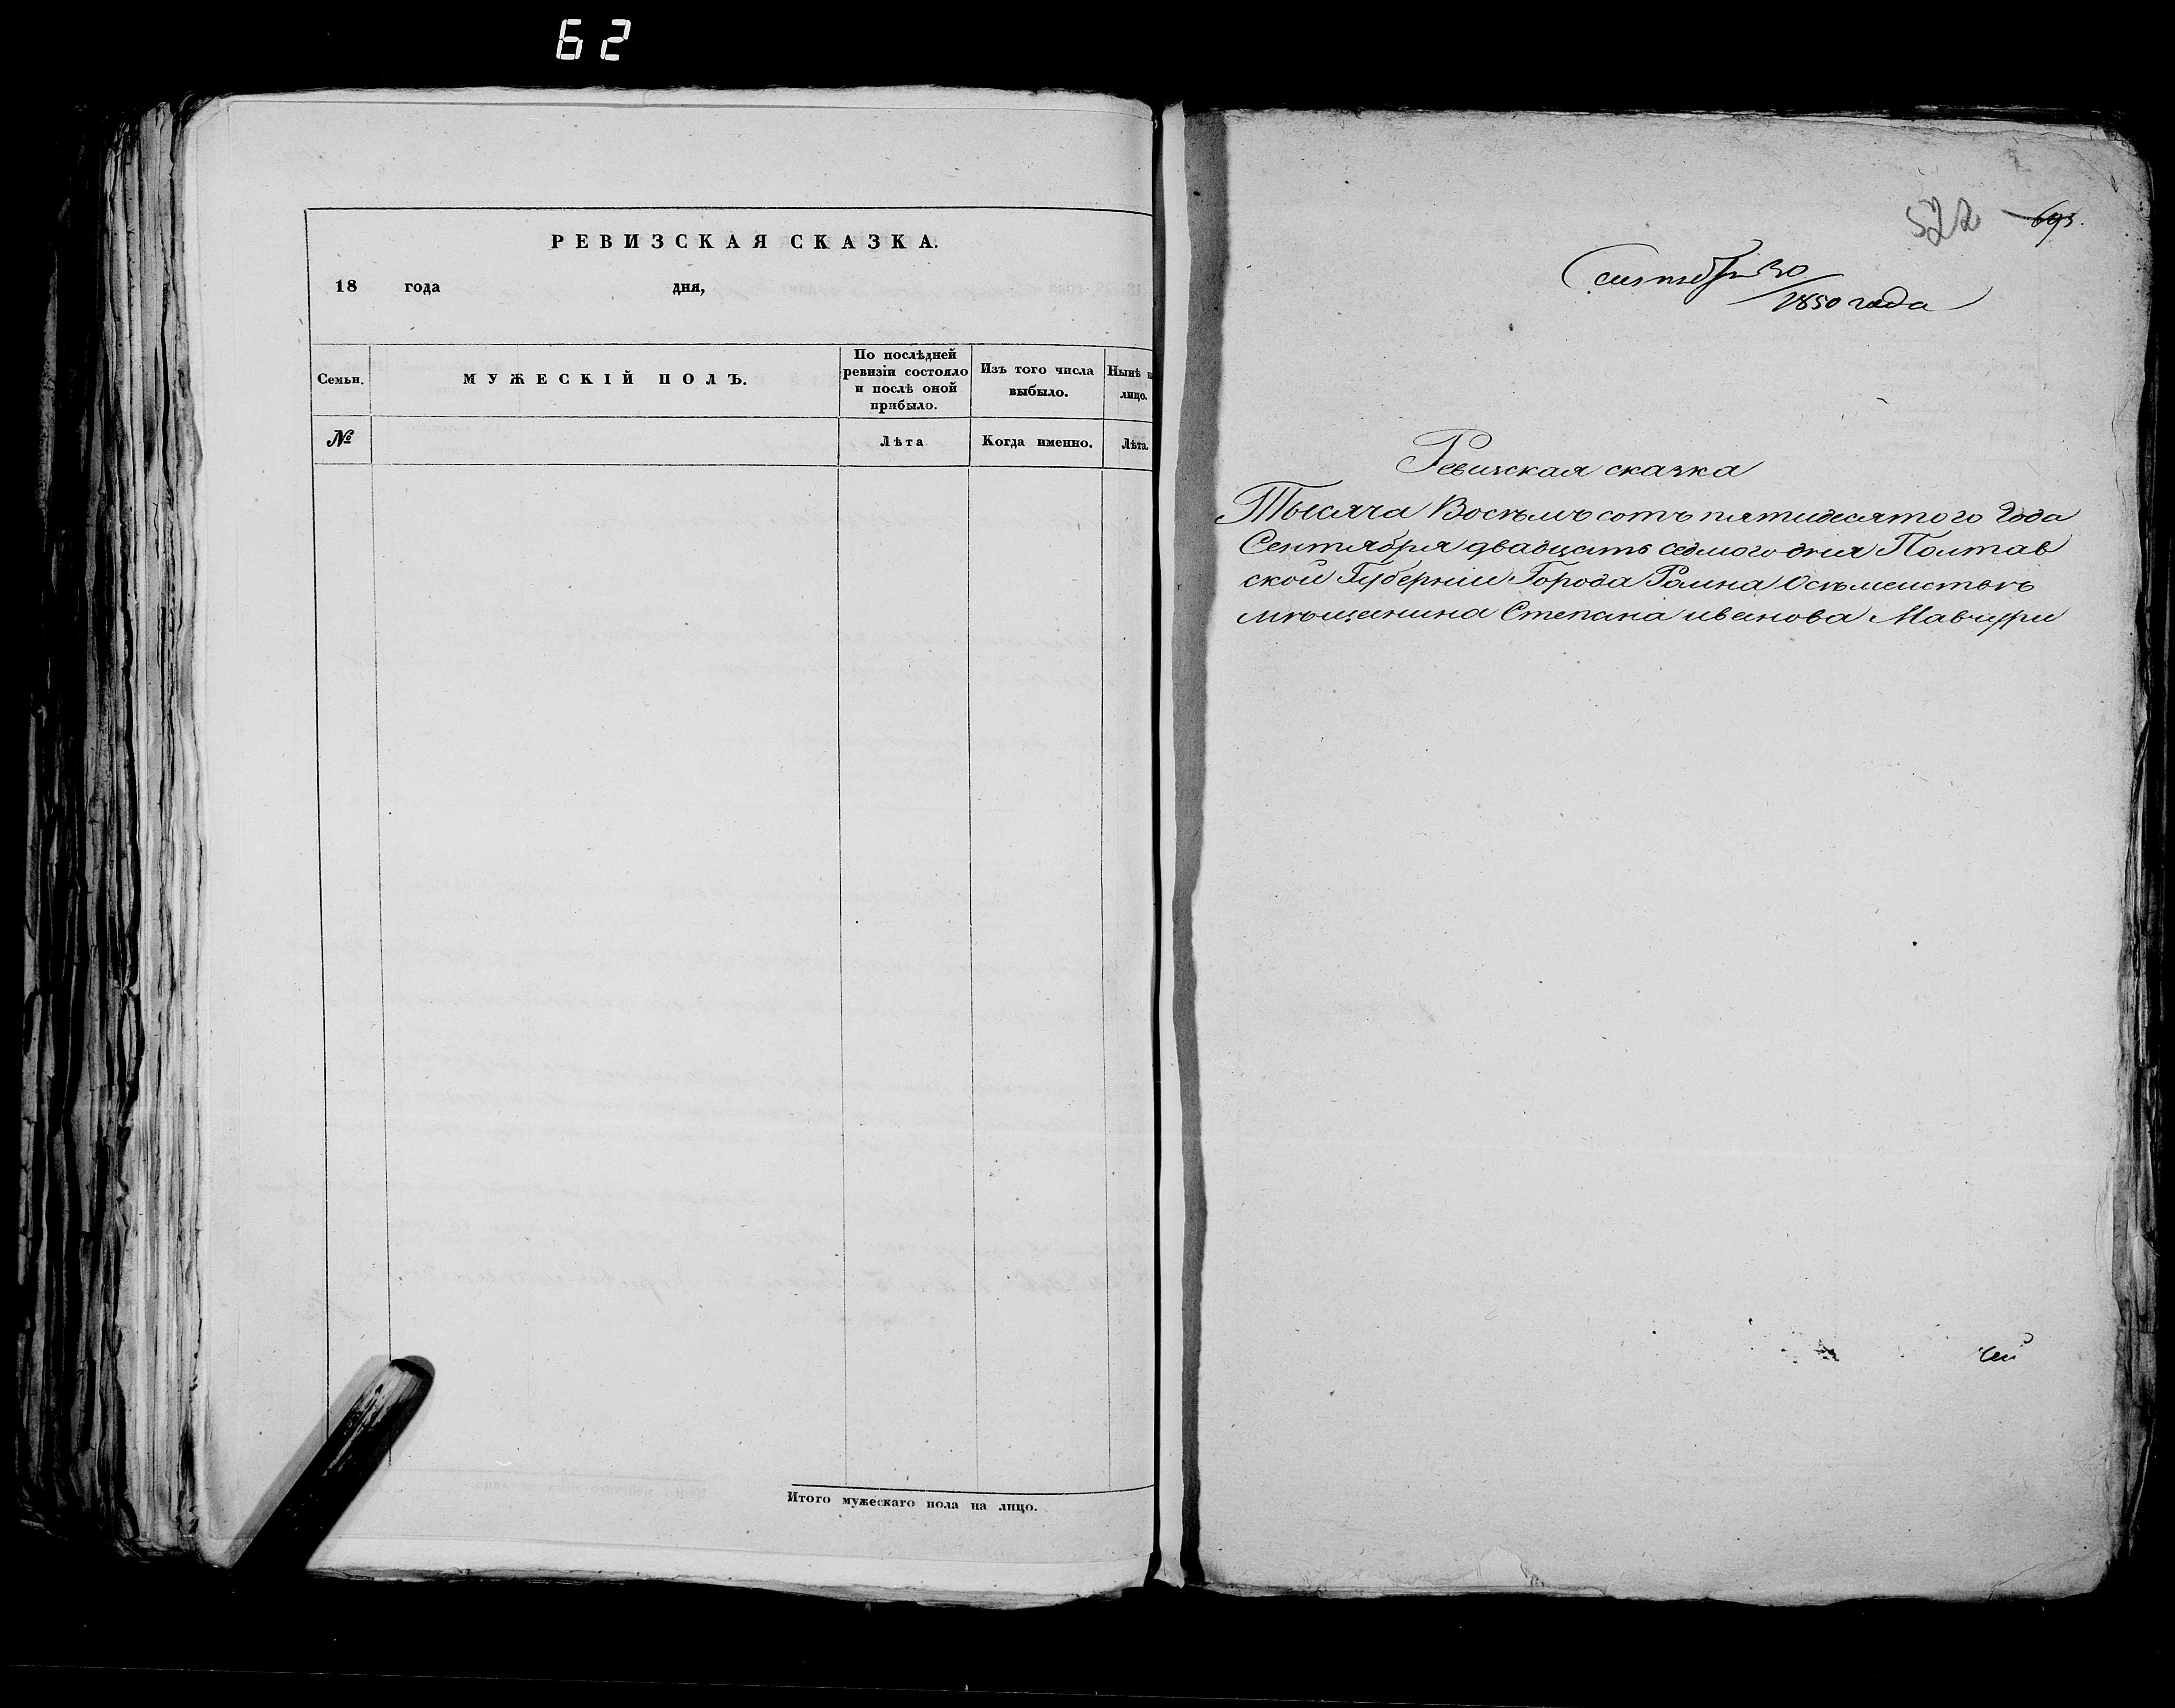 62
РЕВИЗСКАЯ СКАЗКА.
18 года дня,
Семьи.
МУЖЕСКІЙ ПОЛЪ.
По послѣдней
ревизіи состояло
и послѣ оной
прибыло.
Изъ того числа
выбыло.
Нынѣ н
лицо.
№
Лѣта
Когда именно.
Лѣта.
Итого мужескаго пола на лицо.
522 693.
1850 года
Ревизская сказка
Тысяча Восѣмъ сотъ пятидесятого Года
Сентября двадцать седмого дня Полтав
ской Губерніи Города Ромна
мѣщанина Степана иванова